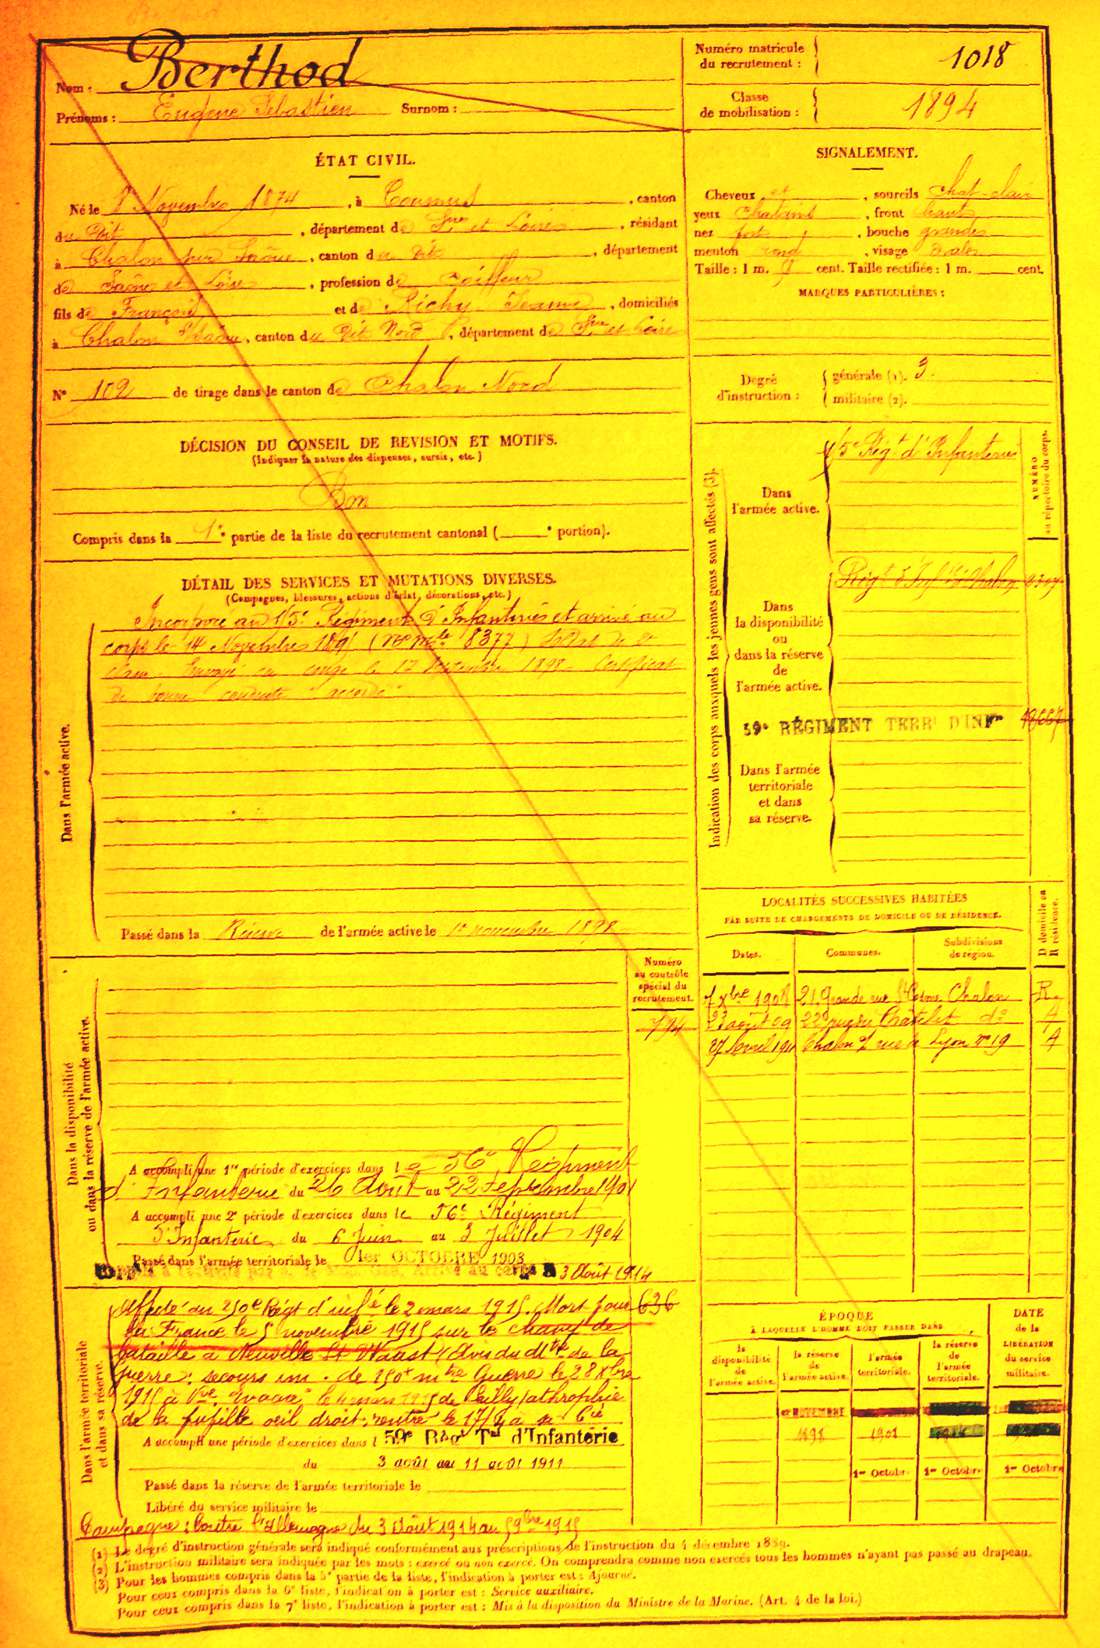 Nom : Berthod
Prénoms : Eugène Sébastien Surnom :
Numéro matricule du recrutement : 1018
Classe de mobilisation : 1894
ÉTAT CIVIL.
Né le Novembre 1874, à, canton
du dit, département de Sne et Loire, résidant
à Chalon sur Saône, canton du dit, département
de Saône et Loire, profession de Coiffeur
fils de François et de Jeanne, domiciliés
à Chalon s/ Saône, canton du dit Nord, département de Sne et Loire
N° 102 de tirage dans le canton de Chalon Nord
SIGNALEMENT.
Cheveux et, sourcils chat-clair
yeux chatains, front haut
nez fort, bouche grande
menton rond, visage ovale
Taille : 1 m. cent. Taille rectifiée : 1 m. cent.
MARQUES PARTICULIÈRES :
Degré d'instruction : générale (1). 3.
militaire (2).
DÉCISION DU CONSEIL DE REVISION ET MOTIFS.
(Indiquer la nature des dispenses, sursis, etc.)
Bon
Compris dans la 1e partie de la liste du recrutement cantonal ( e portion).
DÉTAIL DES SERVICES ET MUTATIONS DIVERSES.
(Campagnes, blessures, actions d'éclat, décorations, etc.)
Dans l'armée active.
Incorporé au Régiment d'Infanterie et arrivé au
corps le 14 Novembre (N° mle 8377) Soldat de 2e
classe. Envoyé en congé le Septembre 1898. Certificat
de bonne conduite "accordé"
Passé dans la Réserve de l'armée active le 1er novembre 1898
Indication des corps auxquels les jeunes gens sont affectés (3).
NUMÉRO au répertoire du corps.
Dans l'armée active.
Régt d'Infanterie
Dans la disponibilité ou dans la réserve de l'armée active.
Régt d'Inf Chalon
59e RÉGIMENT TERRl D'INFie
Dans l'armée territoriale et dans sa réserve.
LOCALITÉS SUCCESSIVES HABITÉES
PAR SUITE DE CHANGEMENTS DE DOMICILE OU DE RÉSIDENCE.
D domicile ou R résidence.
Dates. Communes. Subdivisions de région.
7 xbre 1908 21 Grande rue St Cosme Chalon R
23 août 09 22 rue du Chatelet do
27 Avril 1911 Chalon rue de Lyon n° 19
Numéro au contrôle spécial du recrutement.
794
Dans la disponibilité ou dans la réserve de l'armée active.
A accompli une 1re période d'exercices dans le 56e Régiment
d'Infanterie du 26 Août au 22 Septembre 1901
A accompli une 2e période d'exercices dans le 56e Régiment
d'Infanterie du 6 Juin au 3 Juillet 1904
Passé dans l'armée territoriale le 1er OCTOBRE 1908
Arrivé au corps le 3 Août 1914
Dans l'armée territoriale et dans sa réserve.
Affecté au 250e Régt d'infie le 2 mars 1915. Mort pour 636
la France le 5 novembre 1915 sur le champ de
bataille à Neuville St Waast (Avis du Mtre de la
guerre. secours im. de 150f mtre Guerre le 28 xbre
1915 à Vve
de la pupille œil droit; rentré le
A accompli une période d'exercices dans l 59e Régt Tal d'Infanterie
du 3 août au 11 août 1911
Passé dans la réserve de l'armée territoriale le
Libéré du service militaire le
Campagne : Contre l'Allemagne du 3 Août 1914 au 5 9bre 1915
ÉPOQUE
À LAQUELLE L'HOMME DOIT PASSER DANS
DATE de la LIBÉRATION du service militaire.
la disponibilité de l'armée active. la réserve de l'armée active. l'armée territoriale. la réserve de l'armée territoriale.
NOVEMBRE
1898
1er Octobre 1er Octobre 1er Octobre
(1) Le degré d'instruction générale sera indiqué conformément aux prescriptions de l'instruction du 4 décembre 1889.
(2) L'instruction militaire sera indiquée par les mots : exercé ou non exercé. On comprendra comme non exercés tous les hommes n'ayant pas passé au drapeau.
(3) Pour les hommes compris dans la 5e partie de la liste, l'indication à porter est : Ajourné.
Pour ceux compris dans la 6e liste, l'indication à porter est : Service auxiliaire.
Pour ceux compris dans la 7e liste, l'indication à porter est : Mis à la disposition du Ministre de la Marine. (Art. 4 de la loi.)